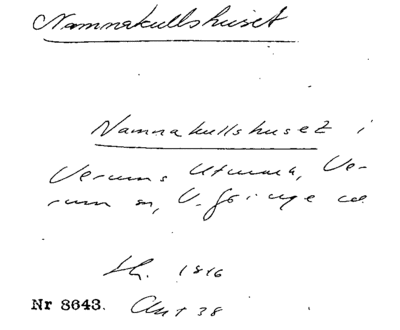 Namnakullshuset
Namnakullshuset i
Verums Utmark, Ve-
rum sn, V. Göinge
Lh. 1816
Nr 8643. Ant 38